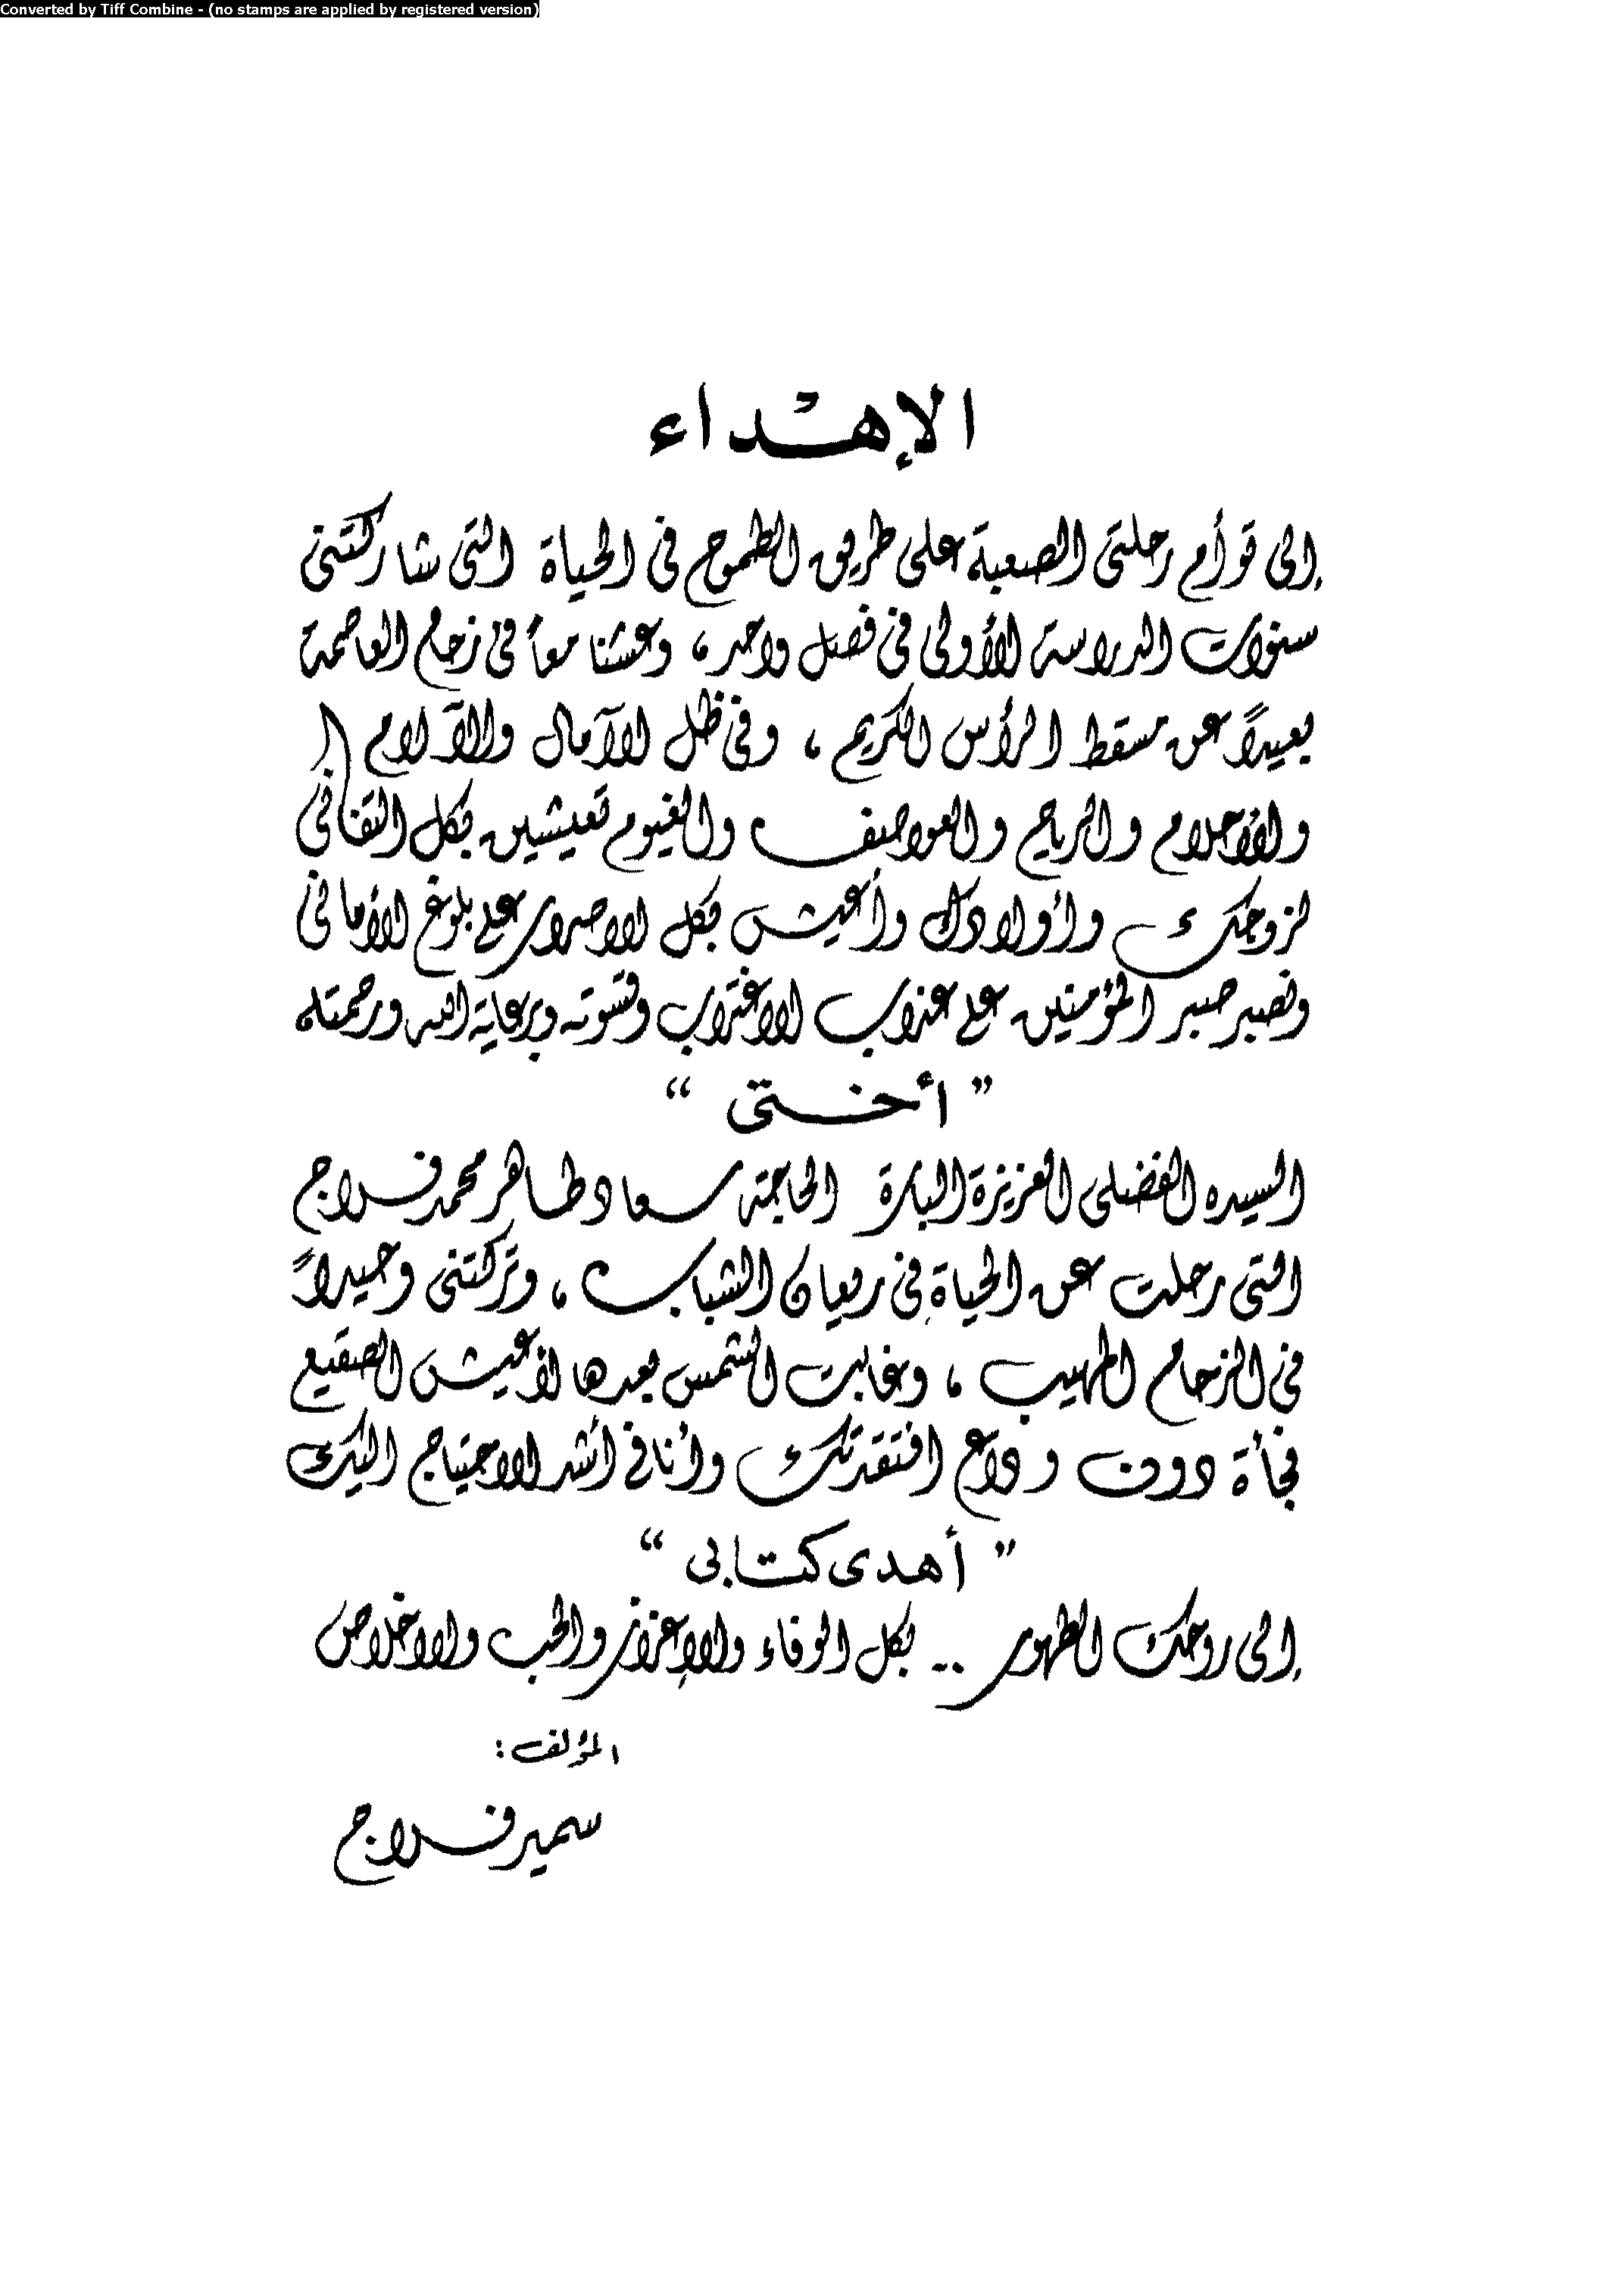 Converted by Tiff Combine - (no stamps are applied by registered version)
الإهداء
إلى توأم رحلتى الصعبة على طريق الطموح فى الحياة التى شاركتنى
سنوات الدراسة الأولى فى فصل واحد، وعشنا معاً فى زحام العاصمة
بعيداً عن مسقط الرأس الكريم، وفى ظل الآمال والآلام
والأحلام والرياح والعواصف والغيوم تعيشين بكل التفانى
لزوجك وأولادك وأعيش بكل الاصرار على بلوغ الأمانى
ونصبر صبر المؤمنين على عذاب الاغتراب وقسوته وبرعاية الله ورحمته
" أختى "
السيده الفضلى العزيزة البارة الحاجة سعاد طاهر محمد فراج
التى رحلت عن الحياة فى ريعان الشباب، وتركتنى وحيداً
فى الزحام المهيب، وغابت الشمس بعدها لأعيش الصقيع
فجأة دون وداع افتقدتك وأنا فى أشد الاحتياج اليك
" أهدى كتابى "
إلى روحك الطهور .. بكل الوفاء والإعزاز والحب والاخلاص
المؤلف:
سمير فراج